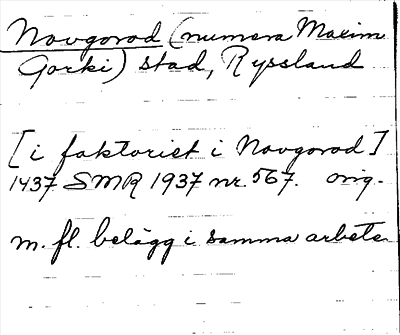 Novgorod (numera Maxim
Gorki) stad, Ryssland
[i faktoriet i Novgorod]
1437 SMR 1937 nr. 567. orig.
m. fl. belägg i samma arbete.